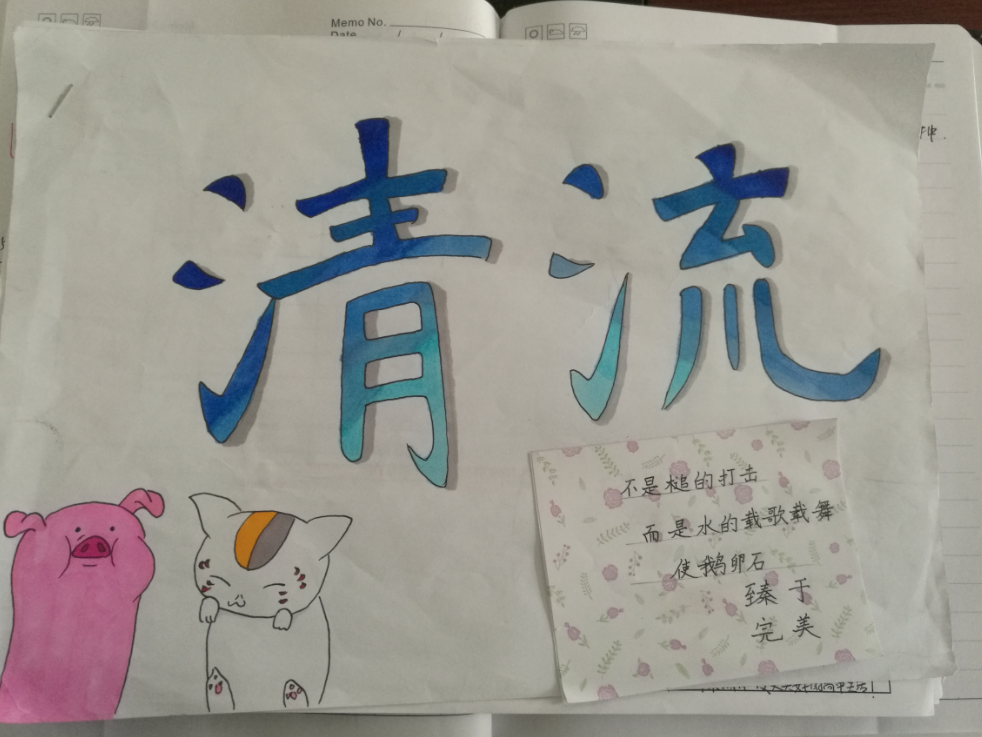 Memo No.
Date / /
清流
不是槌的打击
而是水的载歌载舞
使鹅卵石
臻于
完美